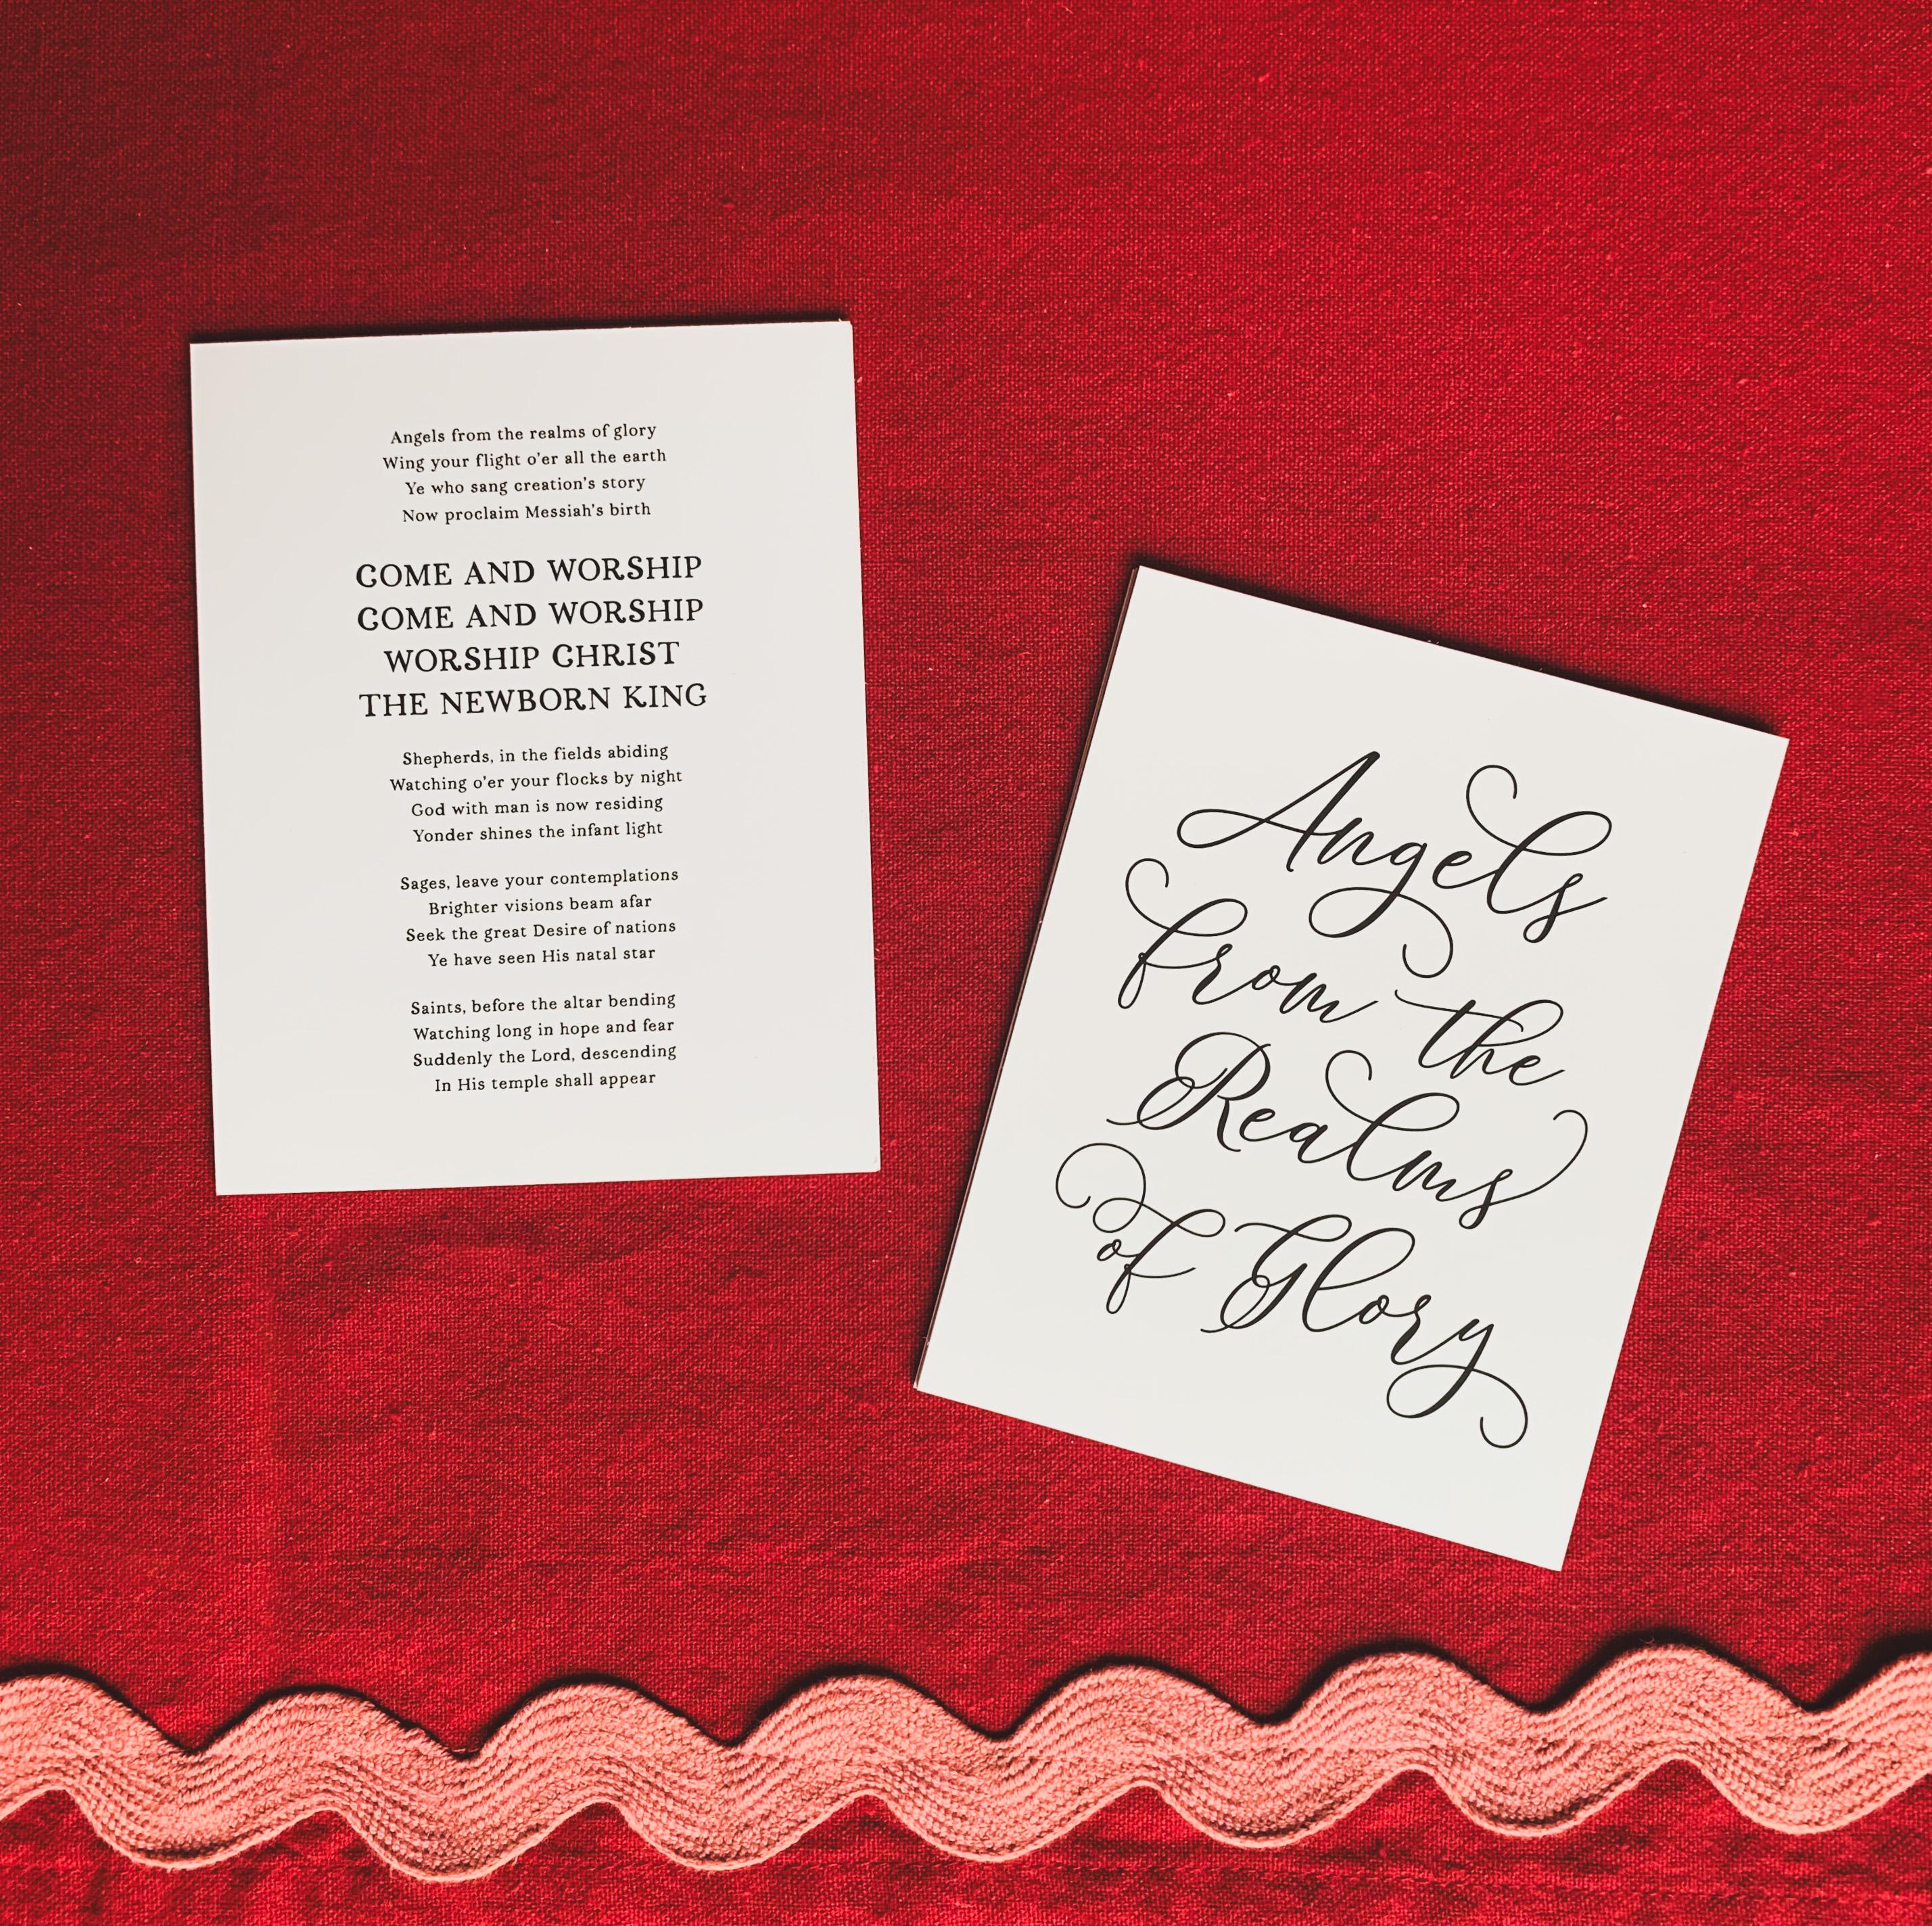 Angels from the realms of glory
Wing your flight o'er all the earth
Ye who sang creation's story
Now proclaim Messiah's birth
COME AND WORSHIP
COME AND WORSHIP
WORSHIP CHRIST
THE NEWBORN KING
Shepherds, in the fields abiding
Watching o'er your flocks by night
God with man is now residing
Yonder shines the infant light
Sages, leave your contemplations
Brighter visions beam afar
Seek the great Desire of nations
Ye have seen His natal star
Saints, before the altar bending
Watching long in hope and fear
Suddenly the Lord, descending
In His temple shall appear
Angels
from the
Realms
of Glory